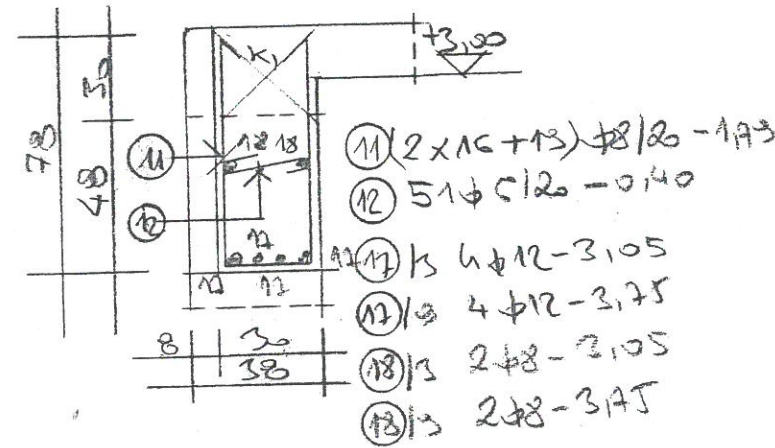 +3,00
K1
30
78
48
11
18 18
12
17
17
17
17
8
30
38
11 (2 x 16 + 19) ϕ8/20 - 1,79
12 51ϕ6/20 - 0,40
17/3 4ϕ12 - 3,05
17/9 4ϕ12 - 3,75
18/3 2ϕ8 - 3,05
18/9 2ϕ8 - 3,75